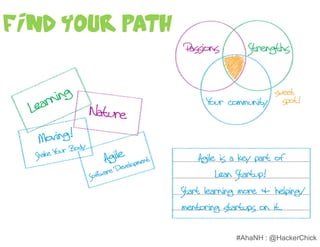 FiND YOUR PATH
Passions
Strengths
Your community
sweet
spot!
Learning
Nature
Moving!
Shake Your Body
Agile
Software Development
Agile is a key part of
Lean Startup!
Start learning more & helping/
mentoring startups on it.
#AhaNH : @HackerChick